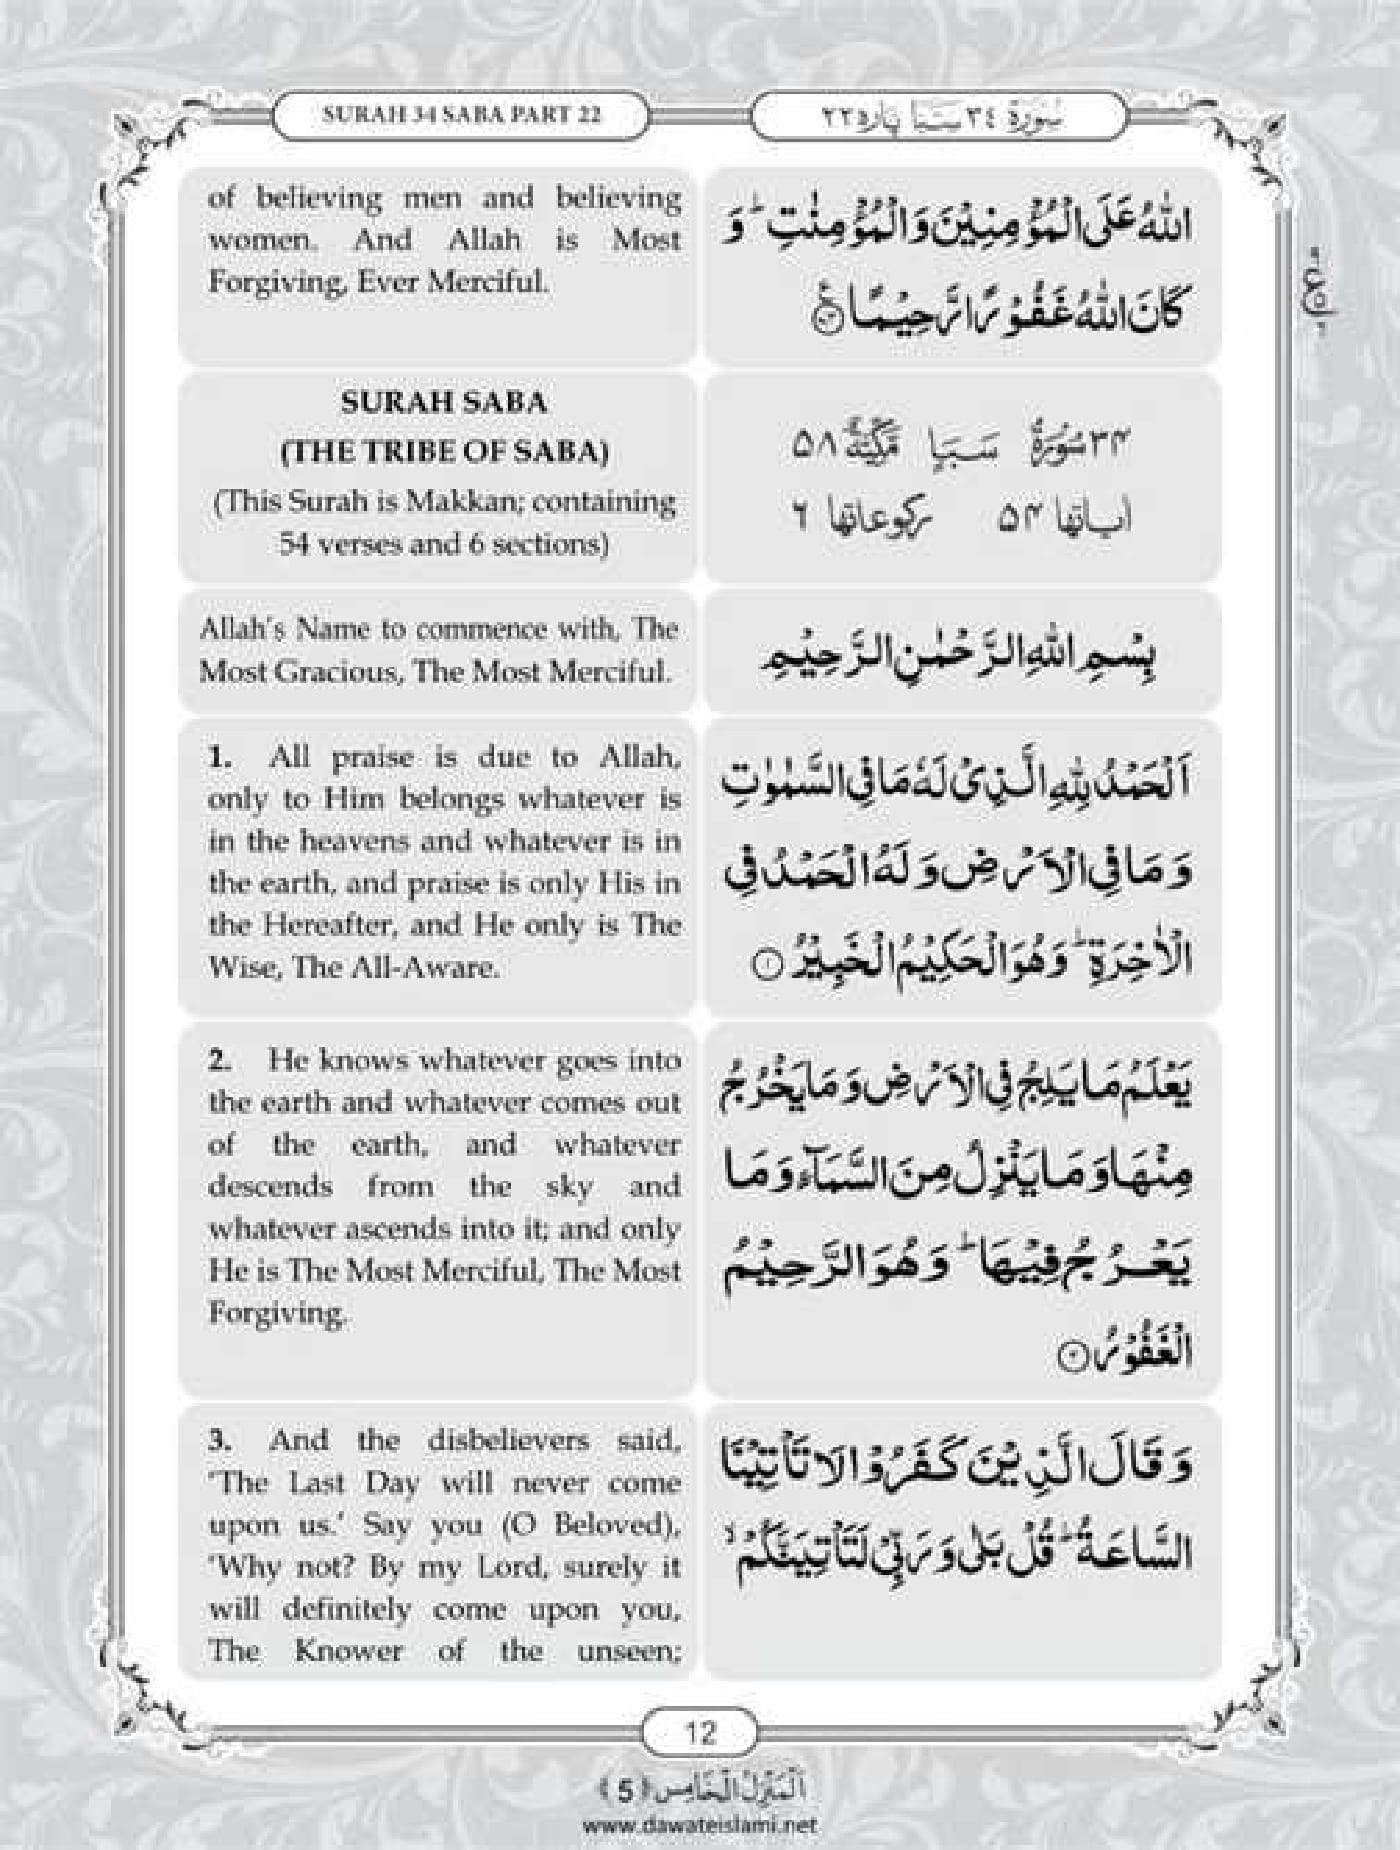 SURAH 34 SABA PART 22
سُوْرَةُ ٣٤ سَبَا پاره٢٢
of believing men and believing
women. And Allah is Most
Forgiving, Ever Merciful.
اللّٰهُ عَلَى الْمُؤْمِنِيْنَ وَ الْمُؤْمِنٰتِ ؕ وَ
كَانَ اللّٰهُ غَفُوْرًا رَّحِيْمًا
SURAH SABA
(THE TRIBE OF SABA)
(This Surah is Makkan; containing
54 verses and 6 sections)
۳۴ سُوْرَةُ سَبَاٍ مَكِّيَّةٌ ۵۸
اٰیاتها ۵۴ رکوعاتها ۶
Allah's Name to commence with, The
Most Gracious, The Most Merciful.
بِسْمِ اللّٰهِ الرَّحْمٰنِ الرَّحِيْمِ
1. All praise is due to Allah,
only to Him belongs whatever is
in the heavens and whatever is in
the earth, and praise is only His in
the Hereafter, and He only is The
Wise, The All-Aware.
اَلْحَمْدُ لِلّٰهِ الَّذِيْ لَهٗ مَا فِي السَّمٰوٰتِ
وَ مَا فِي الْاَرْضِ وَ لَهُ الْحَمْدُ فِي
الْاٰخِرَةِ ؕ وَ هُوَ الْحَكِيْمُ الْخَبِيْرُ ①
2. He knows whatever goes into
the earth and whatever comes out
of the earth, and whatever
descends from the sky and
whatever ascends into it; and only
He is The Most Merciful, The Most
Forgiving.
يَعْلَمُ مَا يَلِجُ فِي الْاَرْضِ وَ مَا يَخْرُجُ
مِنْهَا وَ مَا يَنْزِلُ مِنَ السَّمَآءِ وَ مَا
يَعْرُجُ فِيْهَا ؕ وَ هُوَ الرَّحِيْمُ
الْغَفُوْرُ ②
3. And the disbelievers said,
'The Last Day will never come
upon us.' Say you (O Beloved),
'Why not? By my Lord, surely it
will definitely come upon you,
The Knower of the unseen;
وَ قَالَ الَّذِيْنَ كَفَرُوْا لَا تَاْتِيْنَا
السَّاعَةُ ؕ قُلْ بَلٰى وَ رَبِّيْ لَتَاْتِيَنَّكُمْ ۙ
12
اَلْمَنْزِلُ الْخَامِس (5)
www.dawateislami.net